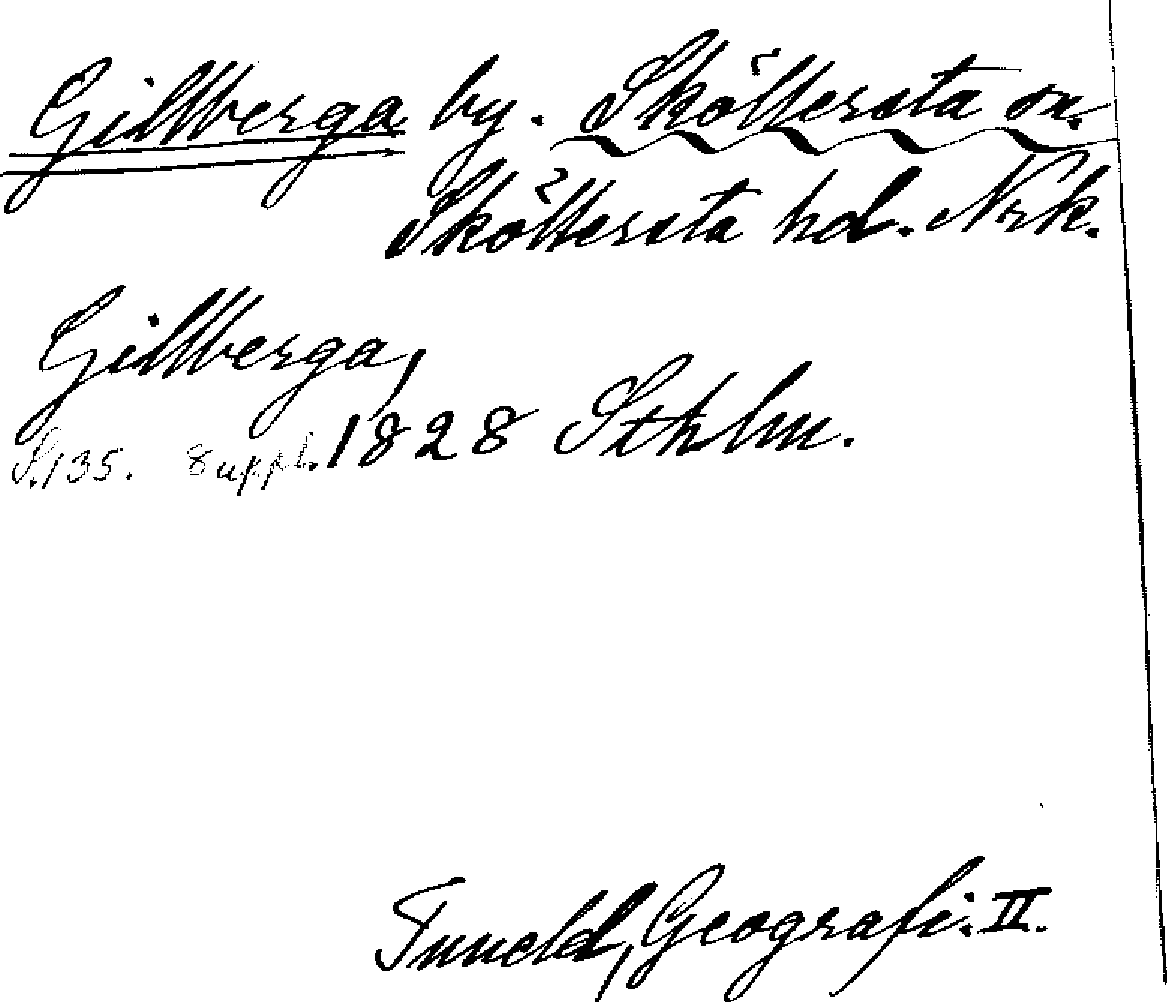 Gillberga by. Sköllersta sn.
Sköllersta hd. Nrk.
Gillberga,
S.135. 8 uppl. 1828 Sthlm.
Tuneld, Geografi. II.